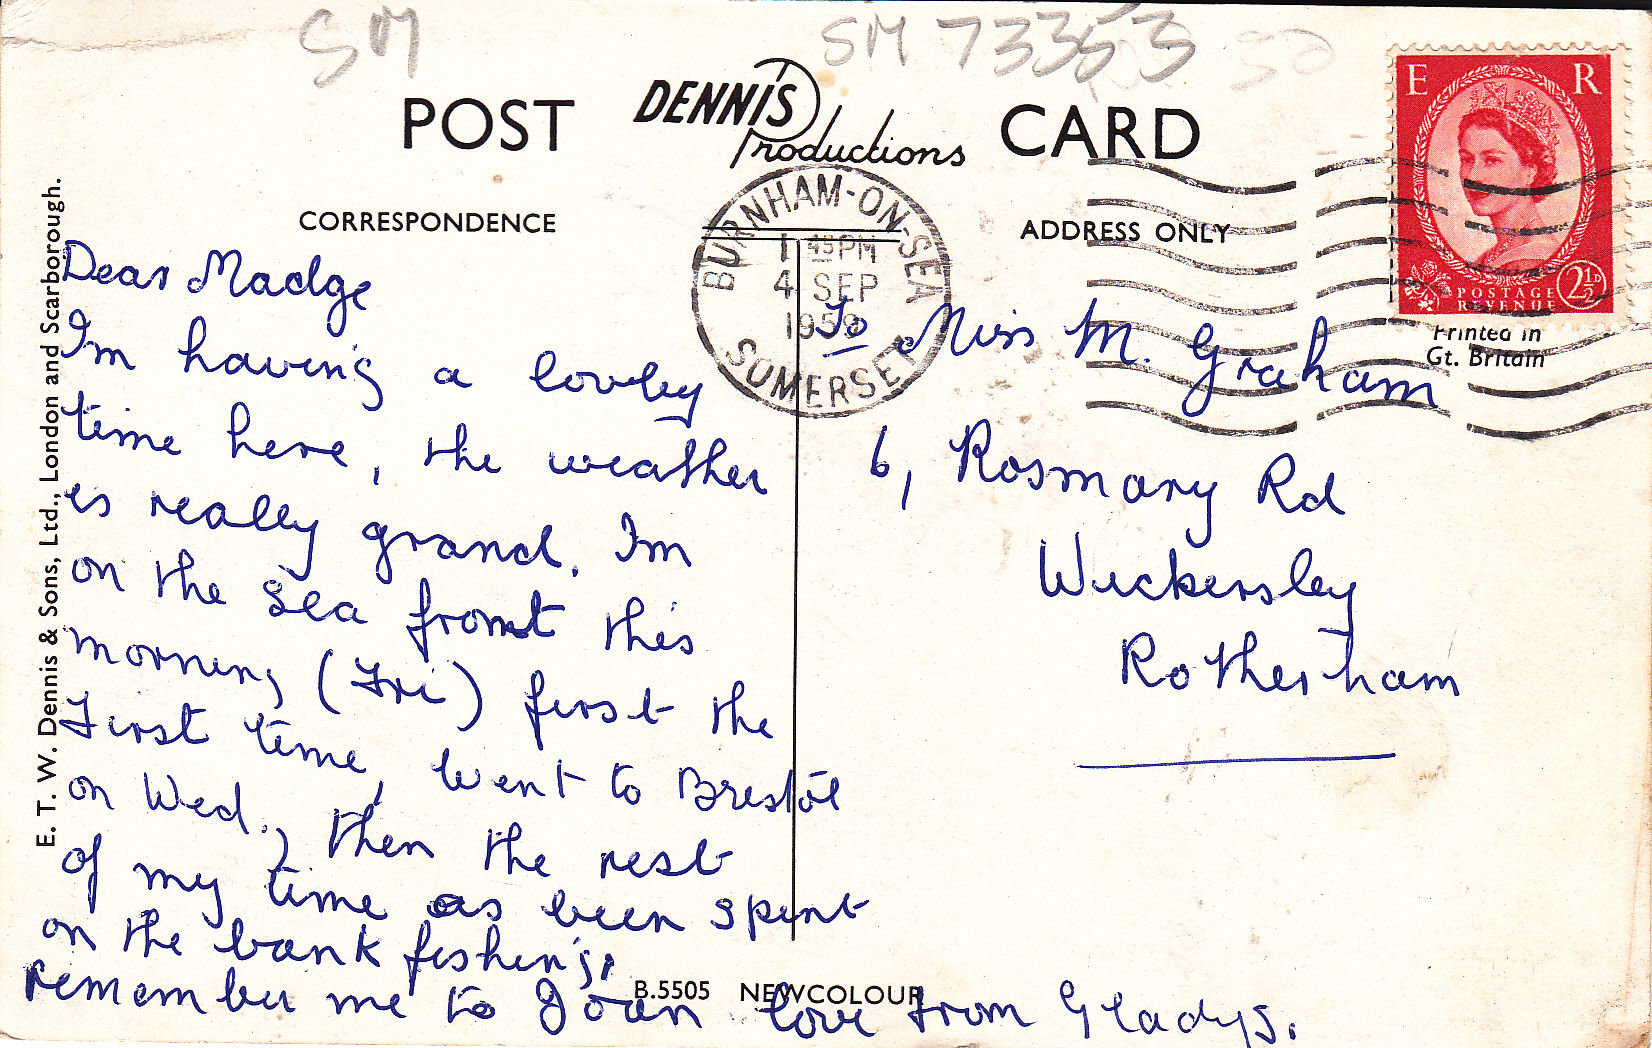 SM
SM 73353
50
POST
DENNIS
Productions
CARD
CORRESPONDENCE
ADDRESS ONLY
E R
POSTAGE
REVENUE
2½D
Printed in
Gt. Britain
BURNHAM-ON-SEA
1 45PM
4 SEP
1959
SOMERSET
E. T. W. Dennis & Sons, Ltd., London and Scarborough.
Dear Madge
Im having a lovley
time here, the weather
is really grand. Im
on the sea front this
morning (Fri) first the
First time, went to Bristol
on Wed., then the rest
of my time as been spent
on the bank fishing,
remember me to Joan love from Gladys.
To Miss M. Graham
6, Rosmary Rd
Wickersley
Rotherham
B.5505 NEWCOLOUR